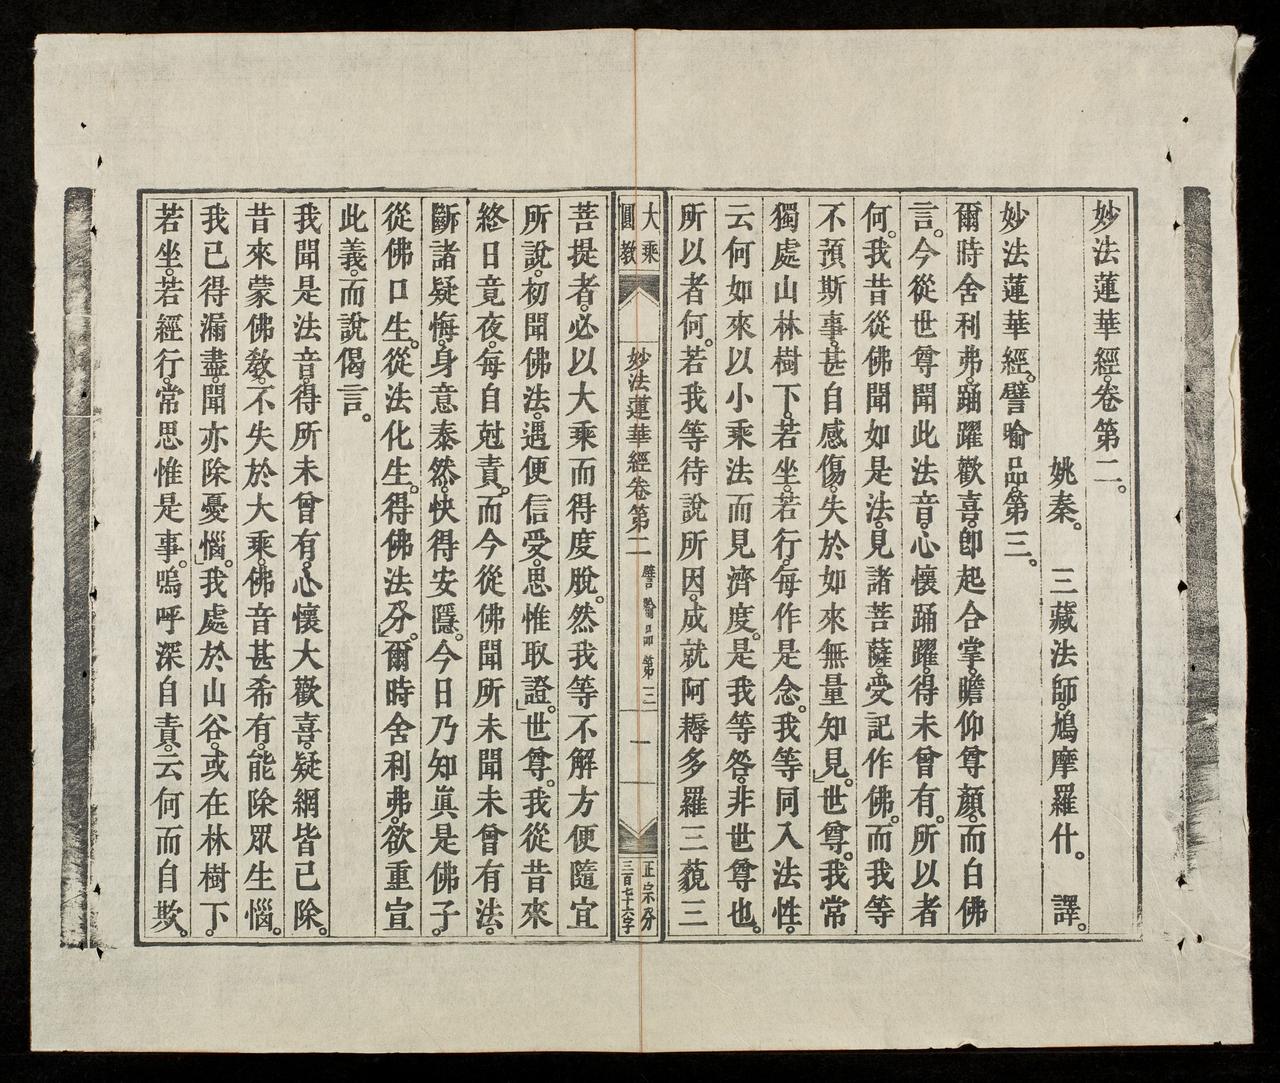 妙法蓮華經卷第二。
姚秦。三藏法師。鳩摩羅什。譯。
妙法蓮華經。譬喻品。第三。
爾時舍利弗。踊躍歡喜。卽起合掌。瞻仰尊顏。而白佛
言。今從世尊聞此法音。心懷踊躍。得未曾有。所以者
何。我昔從佛聞如是法。見諸菩薩。受記作佛。而我等
不預斯事。甚自感傷。失於如來無量知見。」世尊。我常
獨處山林樹下。若坐。若行。每作是念。我等同入法性。
云何如來以小乘法而見濟度。是我等咎。非世尊也。
所以者何。若我等待說所因。成就阿耨多羅三藐三
大乘
圓教
妙法蓮華經卷第二 譬喻品第三 一
正宗分
三百七十六字
菩提者。必以大乘而得度脫。然我等不解方便隨宜
所說。初聞佛法。遇便信受。思惟取證。」世尊。我從昔來
終日竟夜。每自尅責。而今從佛聞所未聞未曾有法。
斷諸疑悔。身意泰然。快得安隱。今日乃知眞是佛子。
從佛口生。從法化生。得佛法分。」爾時舍利弗。欲重宣
此義。而說偈言。
我聞是法音。得所未曾有。心懷大歡喜。疑網皆已除。
昔來蒙佛敎。不失於大乘。佛音甚希有。能除眾生惱。
我已得漏盡。聞亦除憂惱。」我處於山谷。或在林樹下。
若坐。若經行。常思惟是事。嗚呼深自責。云何而自欺。